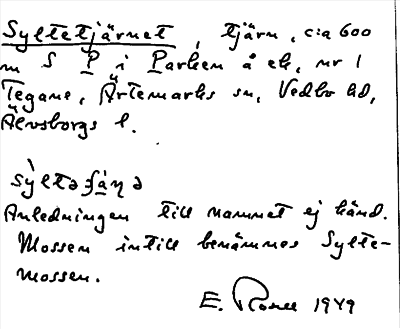 Syltetjärnet, tjärn, c:a 600
m S P i Parken å ek, nr 1
Tegane, Ärtemarks sn, Vedbo hd,
Älvsborgs l.
Anledningen till namnet ej känd.
Mossen intill benämnes Sylte-
mossen.
E. 1949